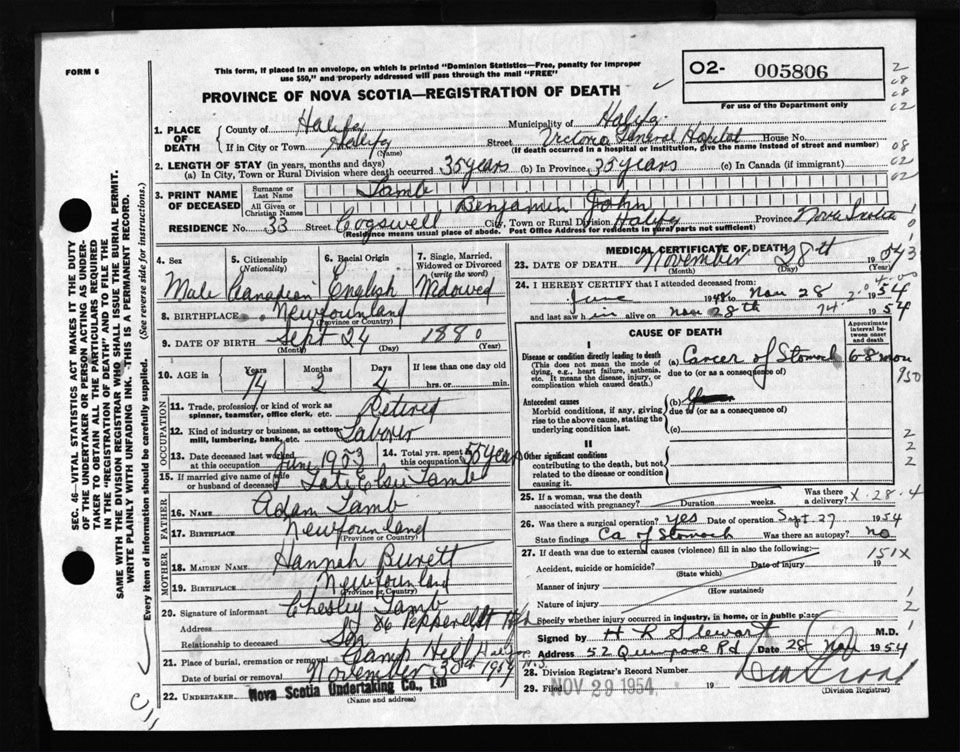 FORM 6
This form, if placed in an envelope, on which is printed "Dominion Statistics—Free, penalty for improper
use $50," and properly addressed will pass through the mail "FREE"
PROVINCE OF NOVA SCOTIA—REGISTRATION OF DEATH
O2- 005806
For use of the Department only
1. PLACE OF DEATH County of Halifax Municipality of Halifax
If in City or Town Halifax (Name) Street Victoria General Hospital House No.
(If death occurred in a hospital or institution, give the name instead of street and number)
2. LENGTH OF STAY (in years, months and days)
(a) In City, Town or Rural Division where death occurred 35 years (b) In Province 35 years (c) In Canada (if immigrant)
3. PRINT NAME OF DECEASED Surname or Last Name Lamb
All Given or Christian Names Benjamin John
RESIDENCE No. 33 Street Cogswell City, Town or Rural Division Halifax Province Nova Scotia
(Residence means usual place of abode. Post Office Address for residents in rural parts not sufficient)
4. Sex Male
5. Citizenship (Nationality) Canadian
6. Racial Origin English
7. Single, Married, Widowed or Divorced (write the word) Widowed
8. BIRTHPLACE Newfounland
(Province or Country)
9. DATE OF BIRTH Sept 24 1880
(Month) (Day) (Year)
10. AGE in Years 74 Months 2 Days 4 If less than one day old
hrs. or min.
OCCUPATION
11. Trade, profession, or kind of work as spinner, teamster, office clerk, etc. Retired
12. Kind of industry or business, as cotton mill, lumbering, bank, etc. Laborer
13. Date deceased last worked at this occupation June 1953
14. Total yrs. spent this occupation 55 years
15. If married give name of wife or husband of deceased Late Elsie Lamb
FATHER
16. NAME Adam Lamb
17. BIRTHPLACE Newfounland
(Province or Country)
MOTHER
18. MAIDEN NAME Hannah
19. BIRTHPLACE Newfounland
(Province or Country)
20. Signature of informant Chesley Lamb
Address 86 Pepperell St Hfx
Relationship to deceased Son
21. Place of burial, cremation or removal Camp Hill Halifax N.S.
Date of burial or removal November 30th 1954
22. UNDERTAKER Nova Scotia Undertaking Co., Ltd
(Name and address)
MEDICAL CERTIFICATE OF DEATH
23. DATE OF DEATH November 28th 1954
(Month) (Day) (Year)
24. I HEREBY CERTIFY that I attended deceased from:
June 1948 to Nov 28 1954
and last saw him alive on Nov 28th 1954
CAUSE OF DEATH
Approximate interval between onset and death
I
Disease or condition directly leading to death (a) Cancer of Stomach 6-8 mon
(This does not mean the mode of dying, e.g., heart failure, asthenia, etc. It means the disease, injury, or complication which caused death.)
due to (or as a consequence of)
Antecedent causes (b)
Morbid conditions, if any, giving rise to the above cause, stating the underlying condition last.
due to (or as a consequence of)
(c)
II
Other significant conditions
contributing to the death, but not related to the disease or condition causing it.
25. If a woman, was the death associated with pregnancy? Duration weeks. Was there a delivery? X-28-4
26. Was there surgical operation? yes Date of operation Sept. 27 1954
State findings Ca of Stomach Was there an autopsy? no
27. If death was due to external causes (violence) fill in also the following: 151X
Accident, suicide or homicide? (State which) Date of injury 19
Manner of injury (How sustained)
Nature of injury
Specify whether injury occurred in industry, in home, or in public place
Signed by H R Stewart M.D.
Address 52 Quinpool Rd Date 28 Nov 1954
28. Division Registrar's Record Number
29. Filed NOV 29 1954 19
(Division Registrar)
SEC. 46—VITAL STATISTICS ACT MAKES IT THE DUTY
OF THE UNDERTAKER OR PERSON ACTING AS UNDER-
TAKER TO OBTAIN ALL THE PARTICULARS REQUIRED
IN THE "REGISTRATION OF DEATH" AND TO FILE THE
SAME WITH THE DIVISION REGISTRAR WHO SHALL ISSUE THE BURIAL PERMIT.
WRITE PLAINLY WITH UNFADING INK. THIS IS A PERMANENT RECORD.
Every item of information should be carefully supplied. (See reverse side for instructions.)